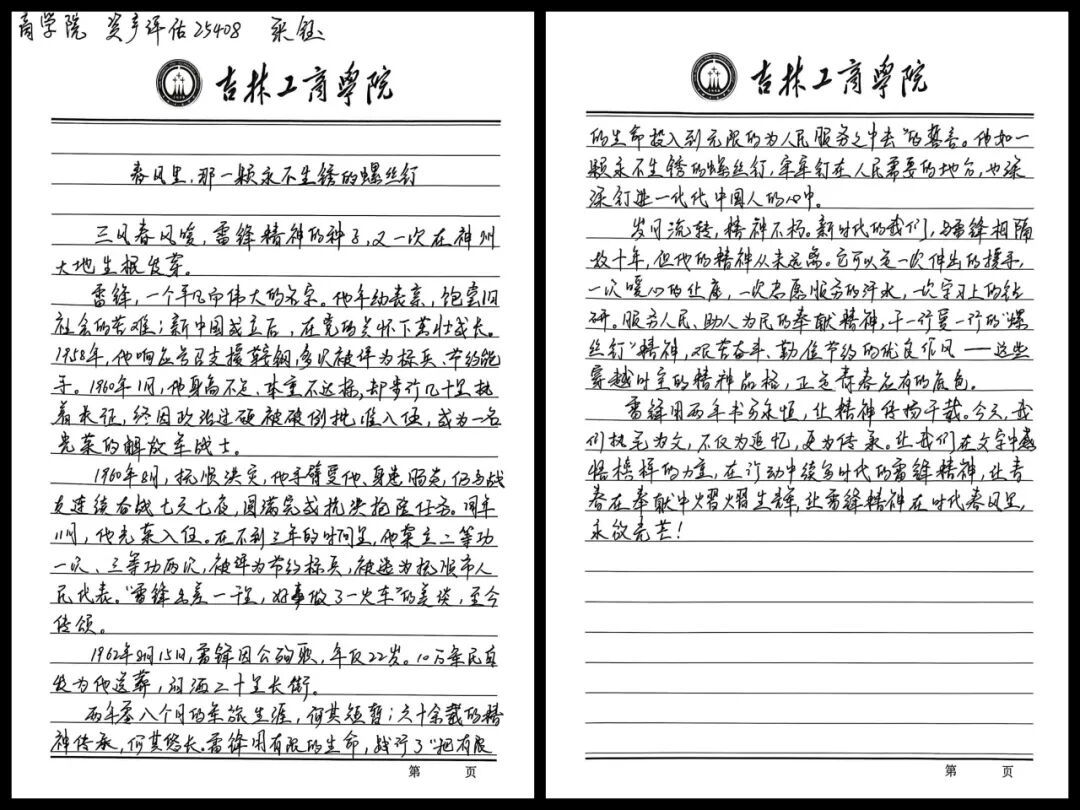 商学院 资产评估25408 宋钰
吉林工商学院
春风里,那一颗永不生锈的螺丝钉
三月春风暖,雷锋精神的种子,又一次在神州
大地生根发芽。
雷锋,一个平凡而伟大的名字。他年幼丧亲,饱尝旧
社会的苦难;新中国成立后,在党的关怀下茁壮成长。
1958年,他响应号召支援鞍钢,多次被评为标兵、节约能
手。1960年1月,他身高不足、体重不达标,却步行几十里执
着表征,终因政治过硬被破例批准入伍,成为一名
光荣的解放军战士。
1960年8月,抚顺洪灾,他手臂受伤、身患肠炎,仍与战
友连续奋战七天七夜,圆满完成抗洪抢险任务。同年
11月,他光荣入伍。在不到三年的时间里,他荣立二等功
一次、三等功两次,被评为节约标兵,被选为抚顺市人
民代表。“雷锋出差一千里,好事做了一火车”的美谈,至今
传颂。
1962年8月15日,雷锋因公殉职,年仅22岁。10万军民自
发为他送葬,泪洒二十里长街。
两年零八个月的军旅生涯,何其短暂;六十余载的精
神传承,何其悠长。雷锋用有限的生命,践行了“把有限
第 页
吉林工商学院
的生命投入到无限的为人民服务之中去”的誓言。他如一
颗永不生锈的螺丝钉,牢牢钉在人民需要的地方,也深
深钉进一代代中国人的心中。
岁月流转,精神不朽。新时代的我们,与雷锋相隔
数十年,但他的精神从未远离。它可以是一次伸出的援手,
一次暖心的让座,一次志愿服务的汗水,一次学习上的钻
研。服务人民、助人为民的奉献精神,干一行爱一行的“螺
丝钉”精神,艰苦奋斗、勤俭节约的优良作风——这些
穿越时空的精神品格,正是青春应有的底色。
雷锋用两年书写永恒,让精神传扬千载。今天,我
们执笔为文,不仅为追忆,更为传承。让我们在文字中感
悟榜样的力量,在行动中续写时代的雷锋精神,让青
春在奉献中熠熠生辉,让雷锋精神在时代春风里,
永放光芒!
第 页